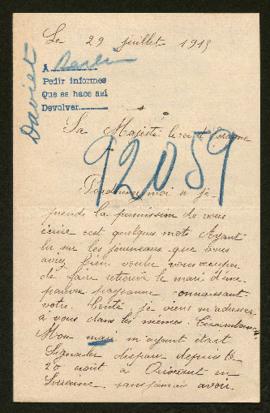 Le 29 juillet 1915
A Berlin
Pedir informes
Que se hace así
Devolver
Daviet
Sa Majesté le roi d'Espagne
92059
Pardonnez moi si je
prends la permission de vous
écrire cest quelques mots Ayant
lu sur les journeaux que vous
aviez bien voulu vous occuper
de faire retrouver le mari d'une
pauvre paysanne connaissant
votre bonté je viens m'adresser
à vous dans les mêmes
Mon mari m'ayant était
Signaler disparu depuis le
20 août à
Lorraine sans jamais avoir